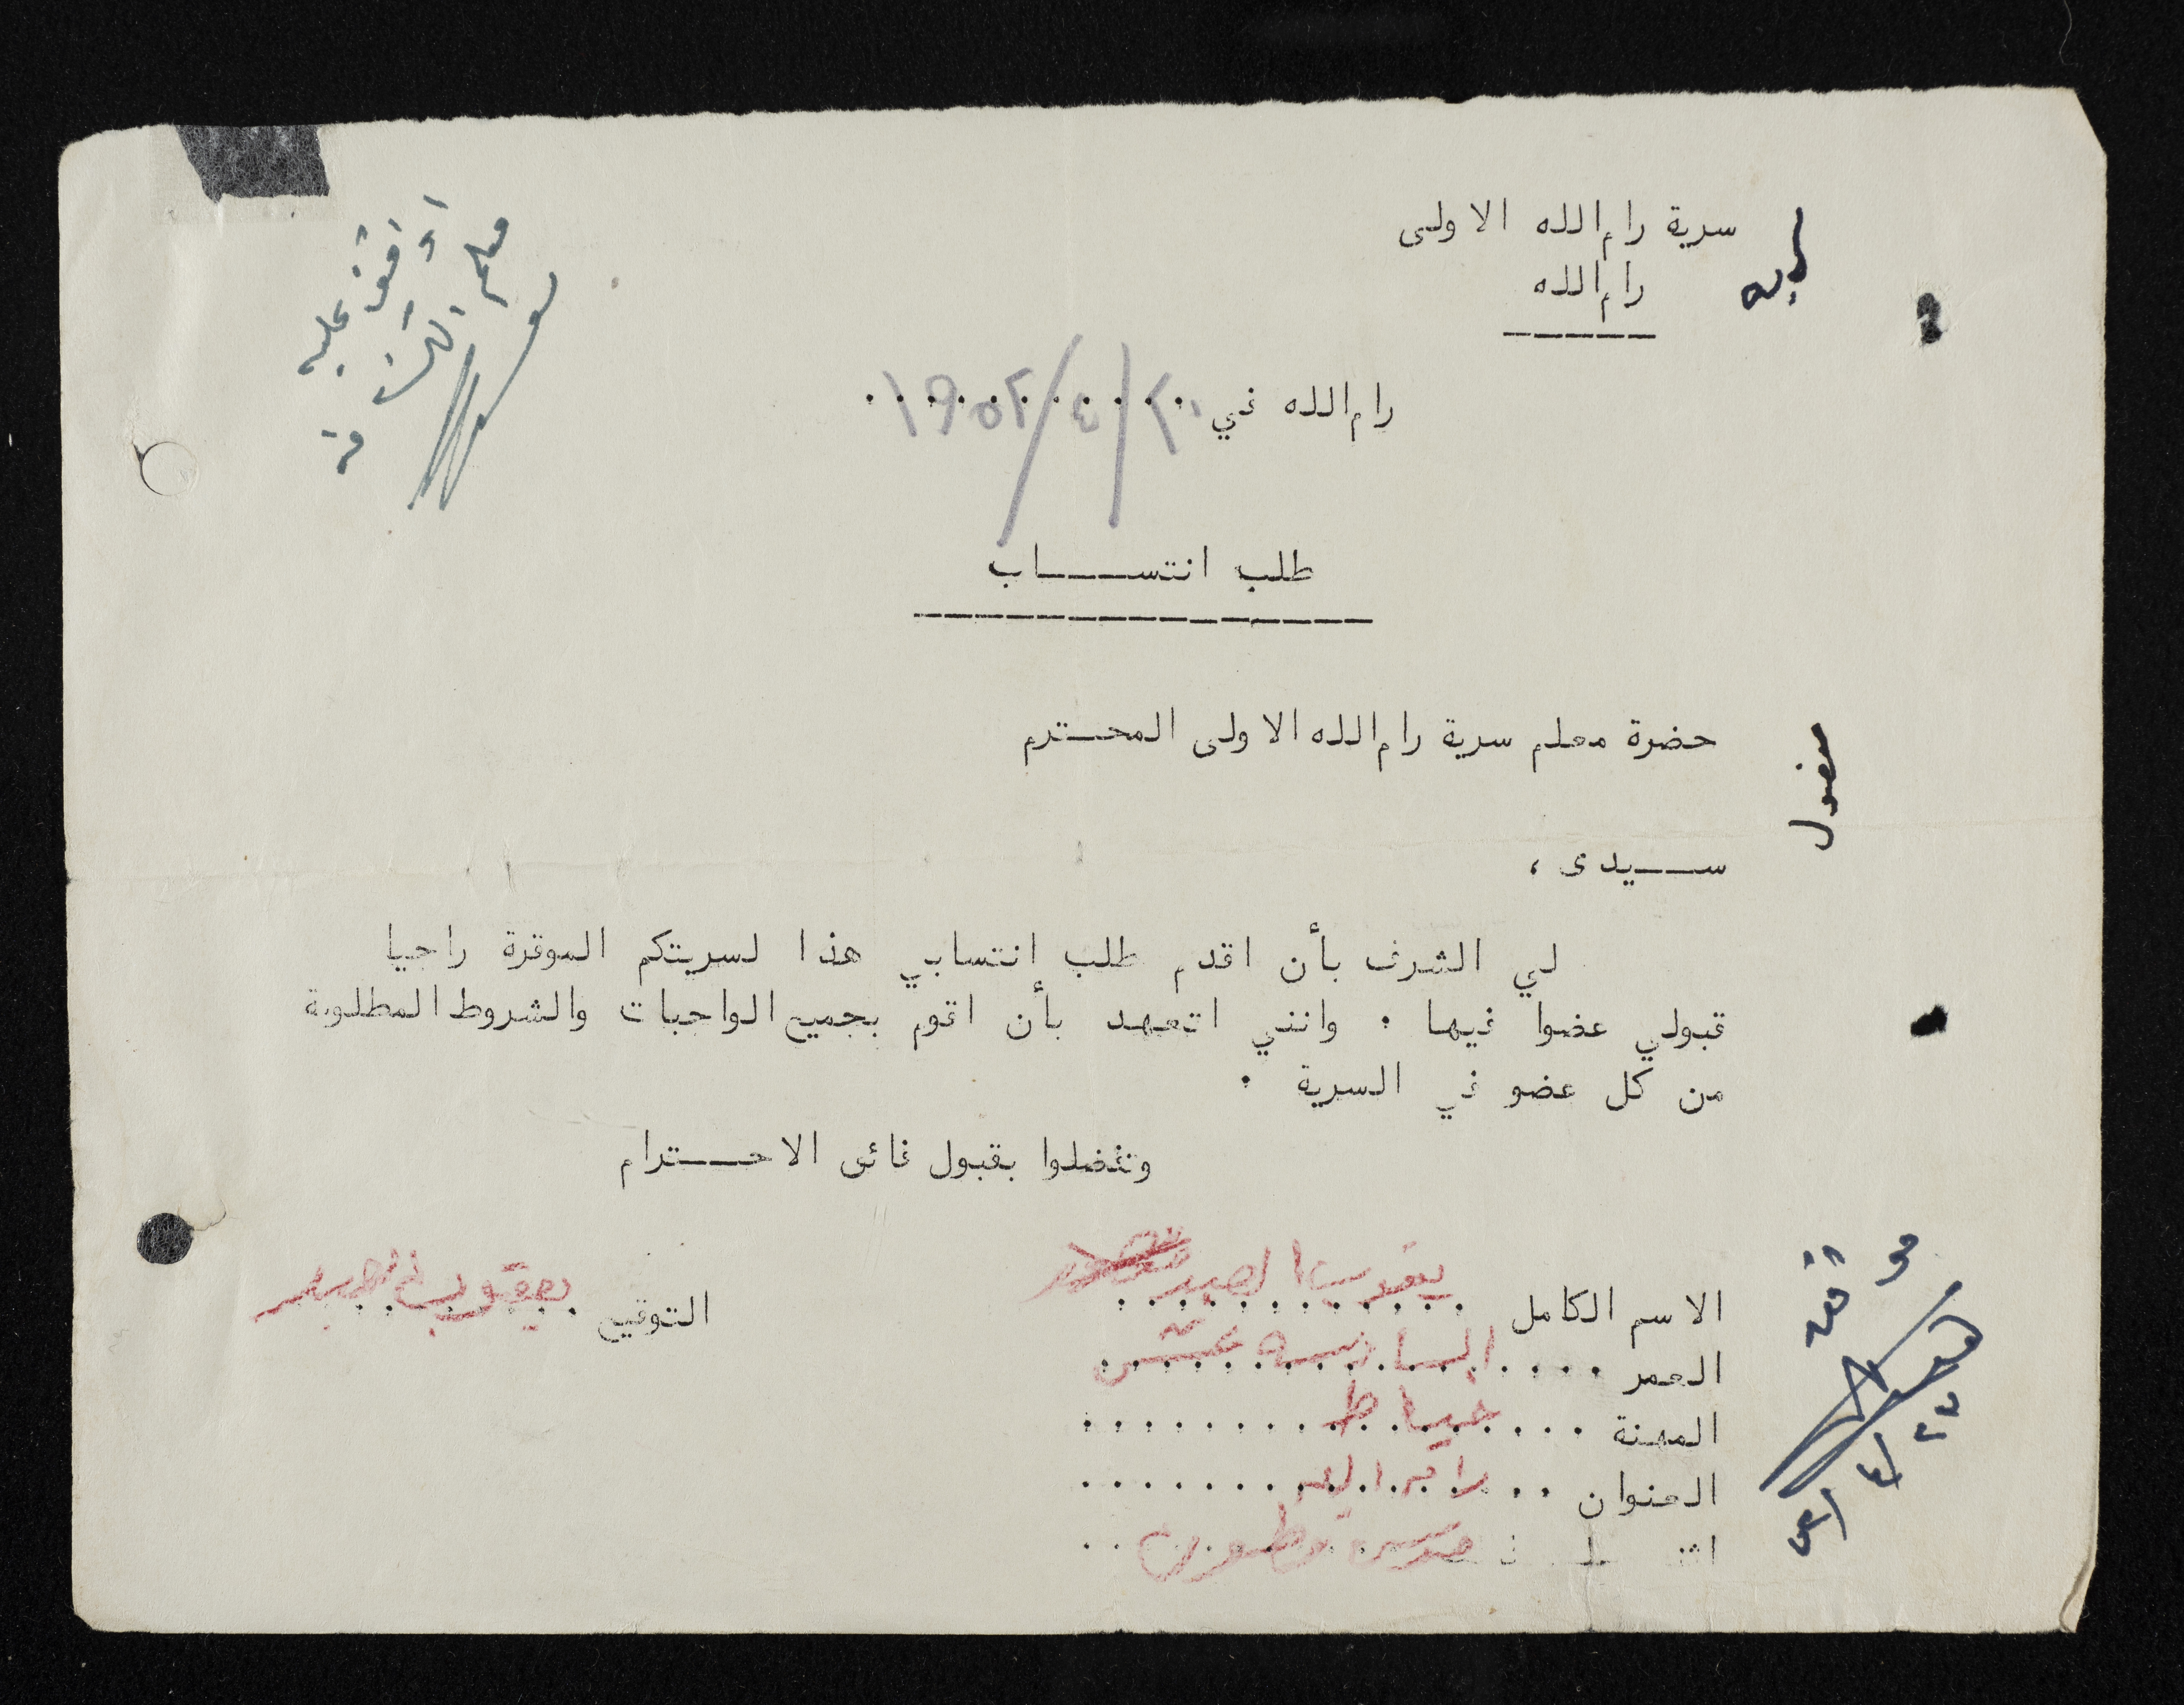 سرية رام الله الاولى
رام الله
اوافق عليه
معلم الكشافة
رام الله في ٢٠/٤/١٩٥٢
طلب انتساب
حضرة معلم سرية رام الله الاولى المحترم
مفصول
سيدى ،
لي الشرف بأن اقدم طلب إنتسابي هذا لسريتكم الموقرة راجيا
قبولي عضوا فيها . وانني اتعهد بأن اقوم بجميع الواجبات والشروط المطلوبة
من كل عضو في السرية .
وتفضلوا بقبول فائق الاحترام
الاسم الكامل يعقوب العبد
التوقيع يعقوب العبد
العمر السادسة عشر
المهنة خياط
العنوان رام الله
موافقه